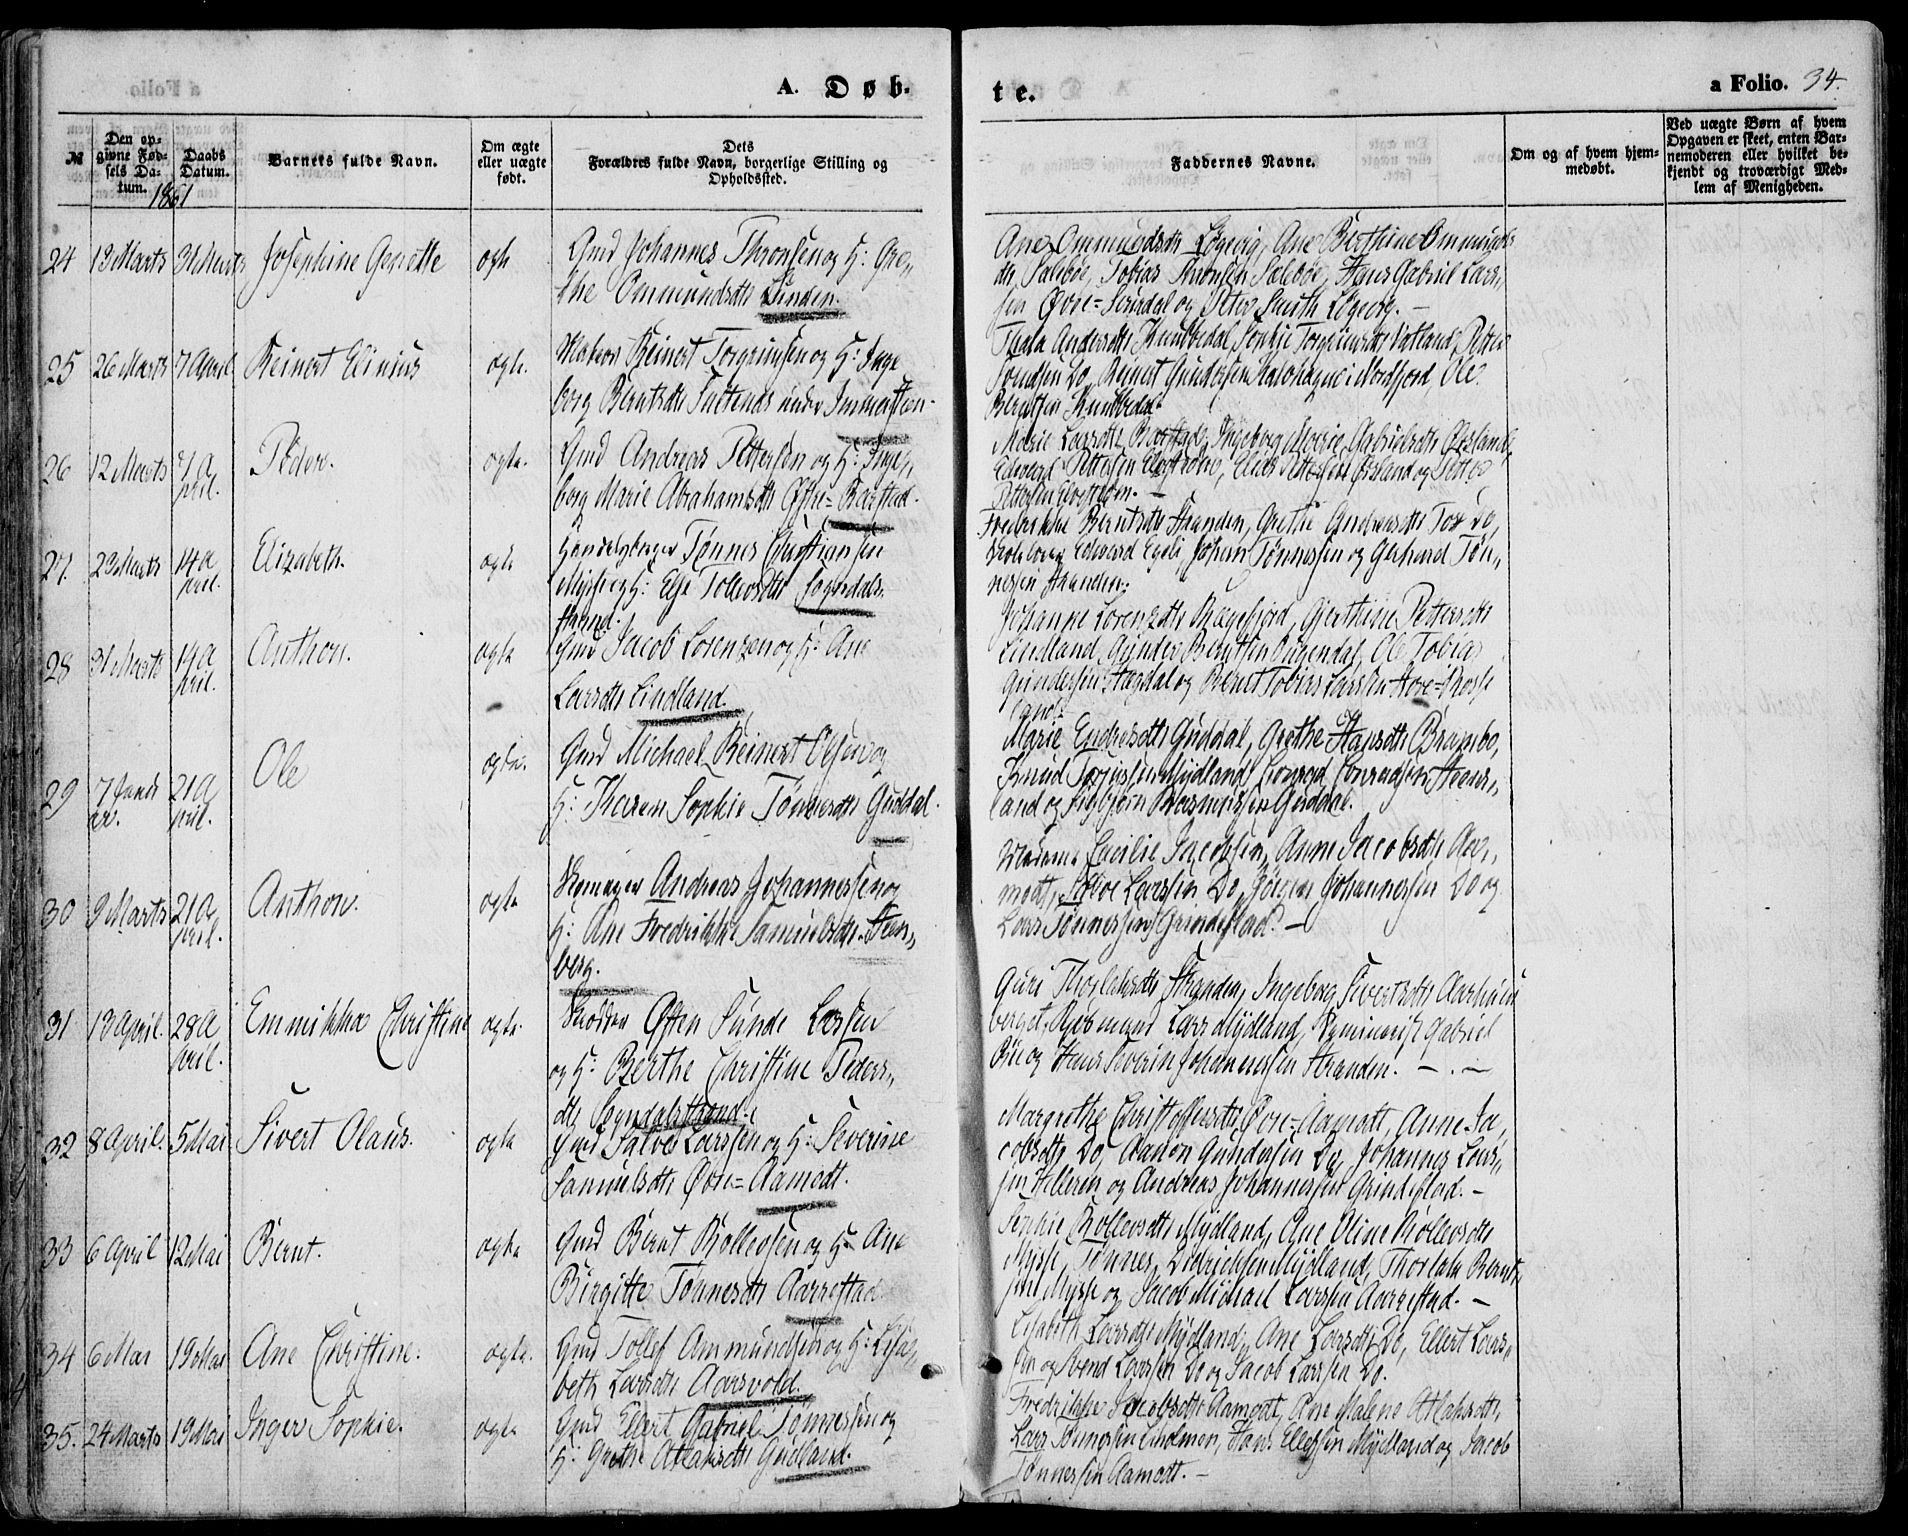 A. Døb-
te.
a Folio. 34.
№
Den op-
givne Fød-
sels Da-
tum.
Daabs
Datum.
1861
Barnets fulde Navn.
Om ægte
eller uægte
født.
Dets
Forældres fulde Navn, borgerlige Stilling og
Opholdssted.
Faddernes Navne.
Om og af hvem hjem-
medøbt.
Ved uægte Børn af hvem
Opgaven er skeet, enten Bar-
nemoderen eller hvilket be-
kjendt og troværdigt Med-
lem af Menigheden.
24 13 Marts 31 Marts Josephine ægte
Gmd Johannes Thronsen og H: Gre,,
the Ommundsdtr Linden.
Ane Ommundsdtr Løgevig, Ane Berthine Ommunds
dtr Salebøe, Tobias Thronsen Salebøe, Hans Gabriel Lars
sen Øvre= og Peter Løgevig. —
25 26 Marts 7 April Reinert Elinius ægte.
Reinert Torgrimsen og H: Inge
borg Berntsdtr under
Andersdtr Knubbedal, Torgrimsdtr Vatland, Petter
Do, Bernt Gundersen i Nordfjord, Ole
Berntsen Knubbedal
26 12 Marts 7 A
pril. Peder. ægte.
Gmd Andreas Pettersen og H: Inge,,
borg Marie Abrahamsdtr Øvre= Barstad.
Marie Larsdtr Barstad, Ingeborg Marie Gabrielsdtr
Edvard Pettersen Elvestrøm, Elias Pettersen og Petter
Pettersen Elvestrøm. —
27. 23 Marts 14 A
pril. Elizabeth. ægte
Handelsborger Tønnes Christiansen
og H: Tollevsdtr Sogndals,,
strand.
Fredrikke Berntsdtr Stranden, Grethe Andreasdtr Do,
Edvard Egeli, Johan Tønnessen og Gerhard Tøn,,
nessen Stranden.
28 31 Marts 14 A
pril. Anthon. ægte
Gmd Jacob Lorenzen og H: Ane
Larsdtr Lindland.
Johanne Lorenzdtr Rægefjord, Gjerthine Pettersdtr
Lindland, Gunder Berntsen Ole Tobias
Gundersen og Bernt Tobias Larsen Store= Rosse
land.
29 7 Janu
ar. 21 A
pril. Ole ægte.
Gmd Michael Reinert Olsen og
H: Karen Sophie Tønnesdtr Guddal.
Marie Endresdtr Guddal, Grethe Hansdtr Brambo,
Knud Mydland, Conrad Conradsen
land og Sigbjørn Rasmussen Guddal.
30 9 Marts 21 A
pril. Anthon. ægte
Andreas Johannessen og
H: Ane Fredrikke Samuelsdtr Sten,,
berg.
Madame Cecilie Jacobsen, Anne Jacobsdtr Aa,,
modt, Salve Larssen Do, Jørgen Johannessen Do og
Lars Tønnessen Grindestad. —
31 13 April. 28 A
pril. Emmikka Christine ægte.
Østen Sunde Larsen
og H: Berthe Christine Peders,,
dtr Sogndalstrand.
Guri Thorlaksdtr Stranden, Ingeborg Sivertsdtr
berget, Kjøbmand Lars Mydland, Seminarist Gabriel
Bøe og Hans Severin Johannessen Stranden. — . —
32 8 April. 5 Mai Sivert Olaus. ægte
Gmd Salve Larssen og H: Severine
Samuelsdtr Øvre= Aamodt.
Margrethe Christoffersdtr Øvre= Aamodt, Anne Ja,,
cobsdtr Do, Aanon Gundersen Do, Johannes Lars,,
sen Helleren og Andreas Johannessen Grindestad. —
33 6 April 12 Mai Bernt. ægte
Gmd Bernt Rollevsen og H: Ane
Birgitte Tønnesdtr Aarrestad.
Sophie Rollevsdtr Mydland, Ane Oline Rollevsdtr
Mysse, Tønnes Didrichsen Mydland, Thorlak Bernt,,
sen Mysse og Jacob Michael Larssen Aarrestad. —
34 6 Mai 19 Mai Ane Christine. ægte.
Gmd Tollef Ammundsen og H: Elisa,,
beth Larsdtr Aarsvold.
Lisabeth Larsdtr Mydland, Ane Larsdtr Do, Ellert Lars,,
sen og Svend Larssen Do og Jacob Larssen Do.
35. 24 Marts 19 Mai Inger Sophie. ægte
Gmd Ellert Gabriel Tønnessen og
H: Grethe Atlaksdtr Gudland.
Fredrikke Jacobsdtr Aamodt, Ane Malene Atlaksdtr,
Lars Tønnessen Lindmoe, Hans Ellefsen Mydland og Jacob
Tønnessen Aamodt. —